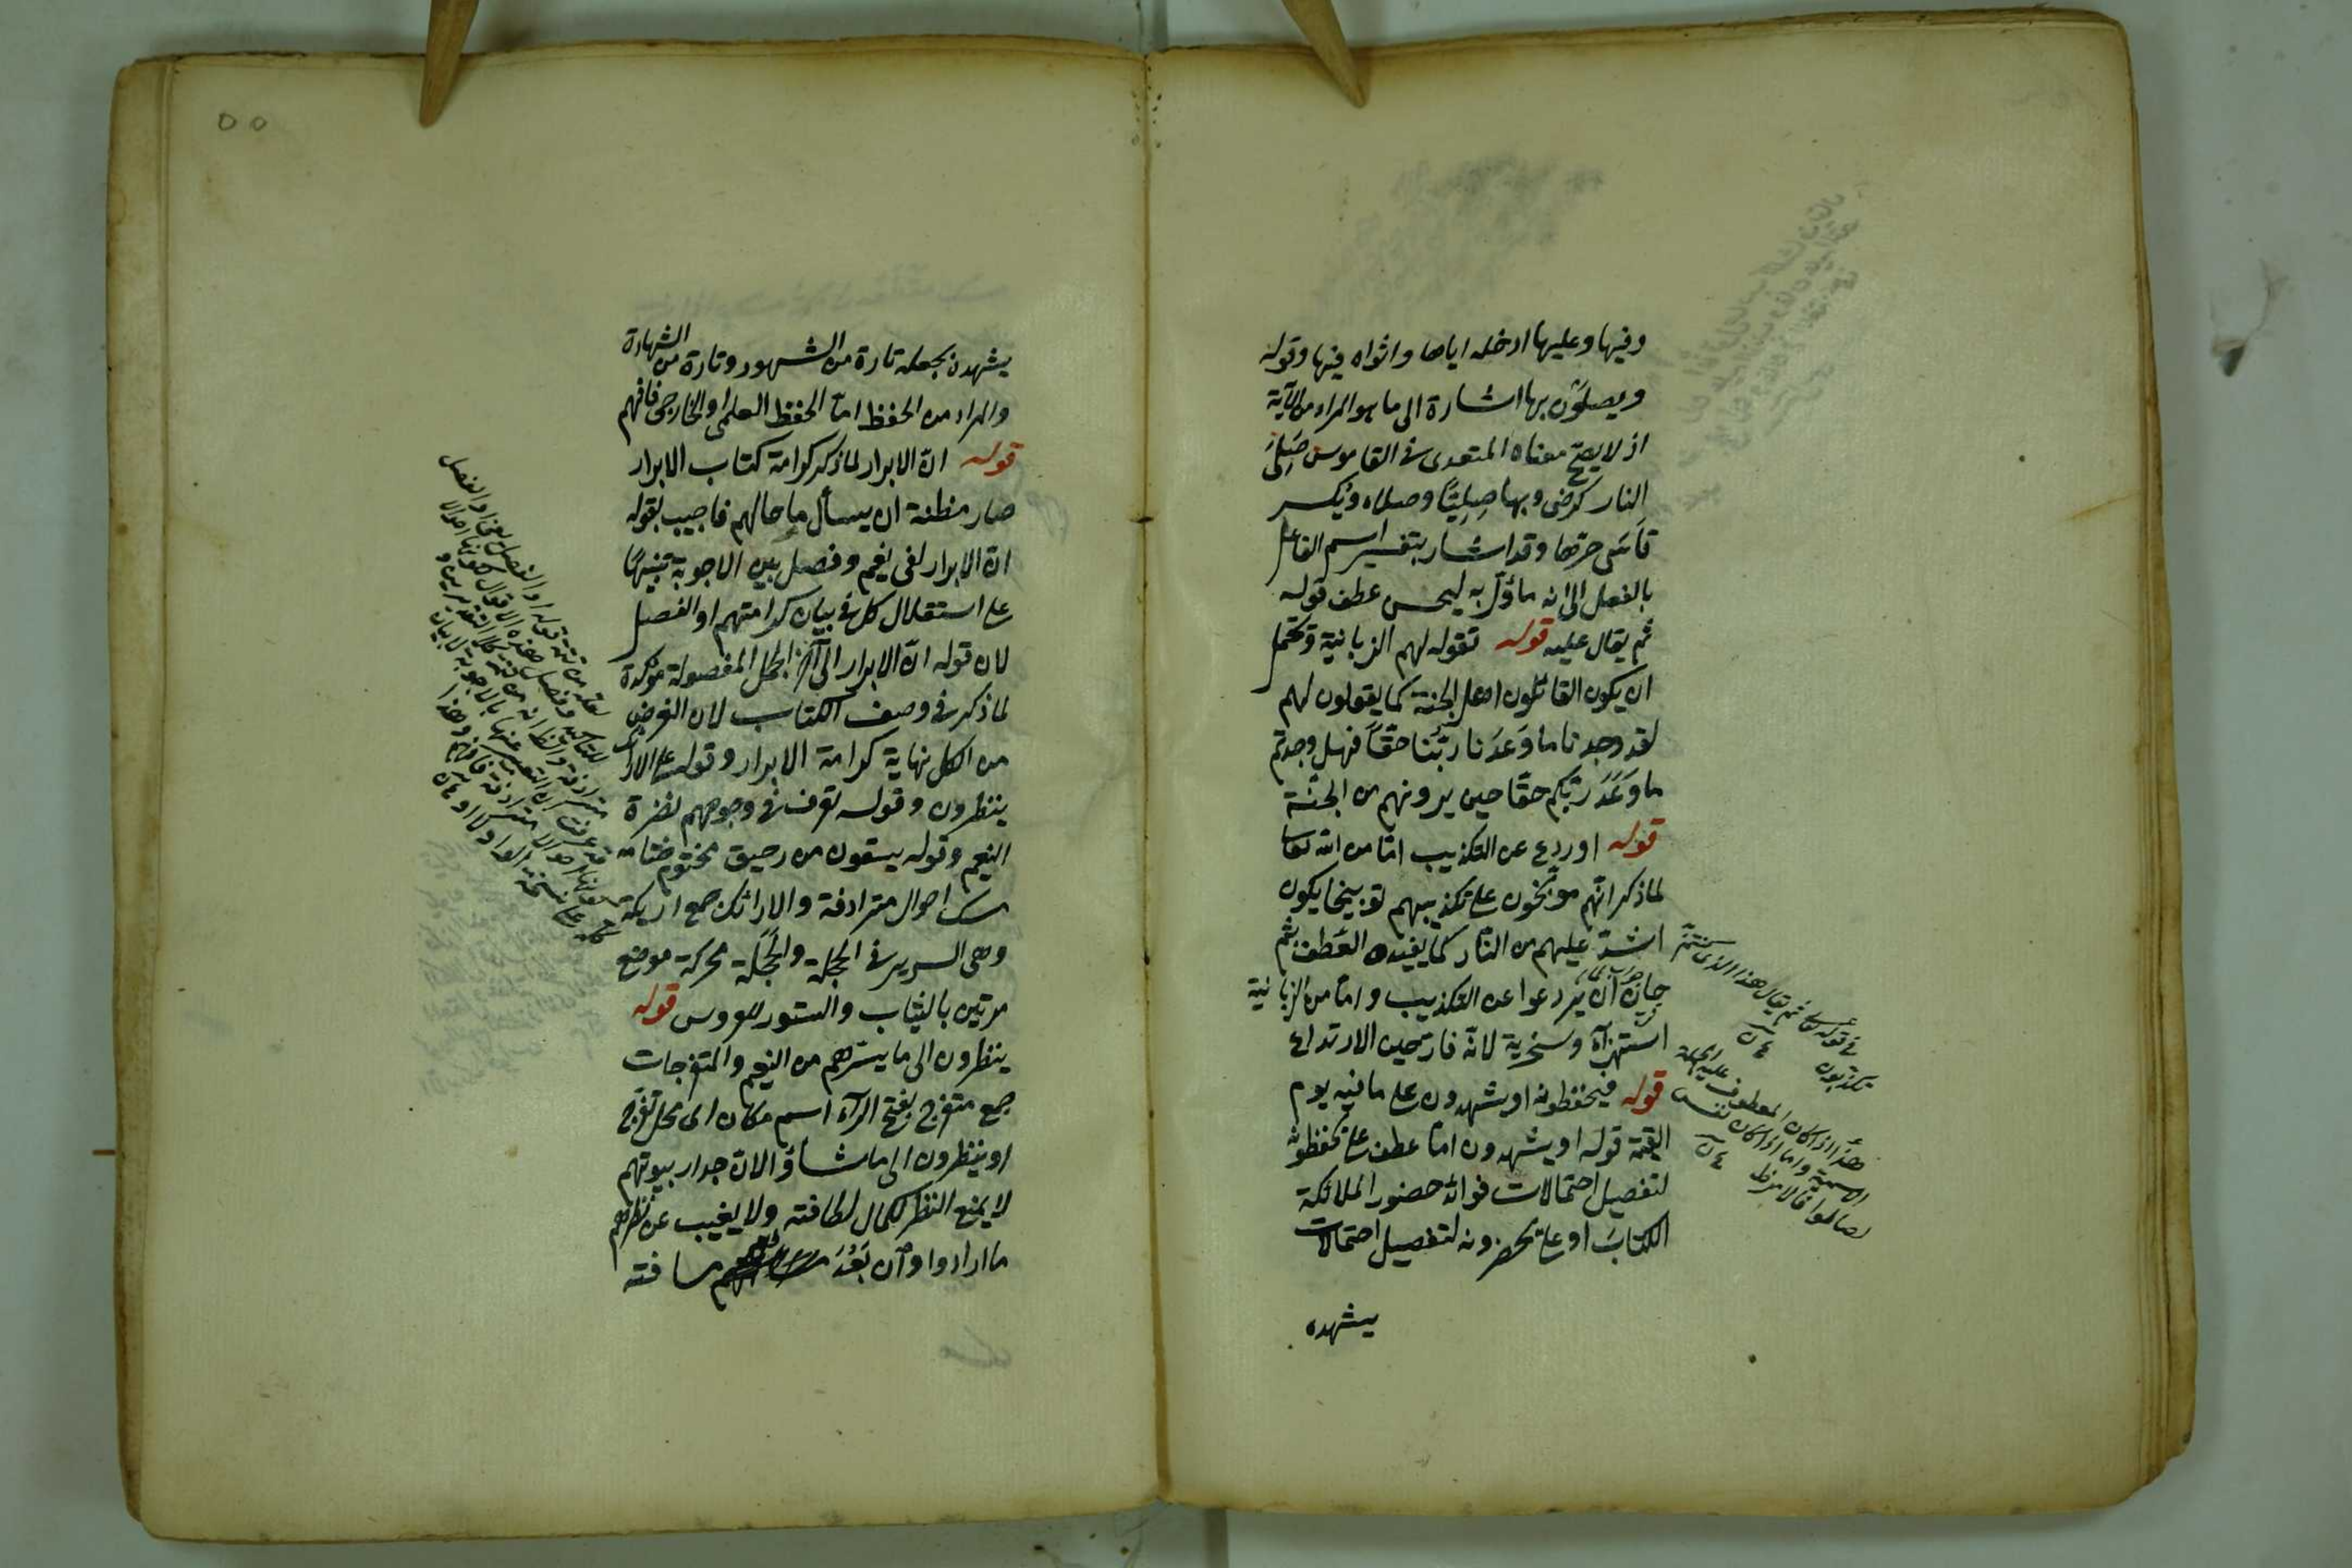 وفيها وعليها ادخله اياها واثواه فيها وقوله
ويصلون بها اشارة الى ما هو المراد من الآية
اذ لا يصح معناه المتعدى فى القاموس صَلِىَ
النار كرضى وبها صِلِيًّا وصلاه ويكسر
قاسَى حرّها وقد اشار بتفسير اسم الفاعل
بالفعل الى انه ماؤل به ليحسن عطف قوله
ثم يقال عليه قوله تقوله لهم الزبانية ويحتمل
ان يكون القائلون اهل الجنة كما يقولون لهم
لقد وجدنا ما وَعَدَنا ربّنا حقّاً فهل وجدتم
ما وَعَدَ ربّكم حقّا حين يرونهم من الجنّة
قوله او ردع عن التكذيب امّا من الله تعالى
لما ذكر انّهم موبّخون على تكذيبهم توبيخا يكون
اشدّ عليهم من النّار كما يفيده العطف بثم
جواب لما
حان ان يردعوا عن التكذيب وامّا من الزبانية
استهزآء وسخرية لانّه فات حين الارتداع
قوله فيحفظونه او يشهدون على ما فيه يوم
القيمة قوله او يشهدون امّا عطف على يحفظونه
لتفصيل احتمالات فوائد حضور الملائكة
الكتابَ او على يحضرونه لتفصيل احتمالات
يشهده
فى قوله تعالى ثم يقال هذا الذى كنتم
تكذبون
هذا اذا كان المعطوف عليه الجملة
الاسمية واما اذا كان نفس
لصالوا فالامر ظ
٥٥
يشهده بجعله تارة من الشهود وتارة من الشهادة
والمراد من الحفظ امّا الحفظ العلمى او الخارجى فافهم
قوله انّ الابرار لما ذكر كرامة كتاب الابرار
صار مظنة ان يسأل ما حالهم فاجيب بقوله
انّ الابرار لفى نعيم وفصل بين الاجوبة تنبيهًا
على استقلال كل فى بيان كرامتهم او الفصل
لان قوله انّ الابرار الى آخر الجمل المفصولة مؤكدة
لما ذكر فى وصف الكتاب لان الغرض
من الكل نهاية كرامة الابرار وقوله على الارائك
ينظرون وقوله تعرف فى وجوههم نضرة
النعيم وقوله يسقون من رحيق مختوم ختامه
مسك احوال مترادفة والارائك جمع اريكة
وهى السرير فى الحجلة والحَجَلة محركة موضع
مزيّن بالثياب والستور للعروس قوله
ينظرون الى ما يسرّهم من النعيم والمتفرجات
جمع متفرج بفتح الرآء اسم مكان اى محل تفرّج
او ينظرون الى ما شاؤا لانّ جدار بيوتهم
لا يمنع النظر لكمال لطافته ولا يغيب عن نظرهم
ما ارادوا وان بَعُدَ مسافته